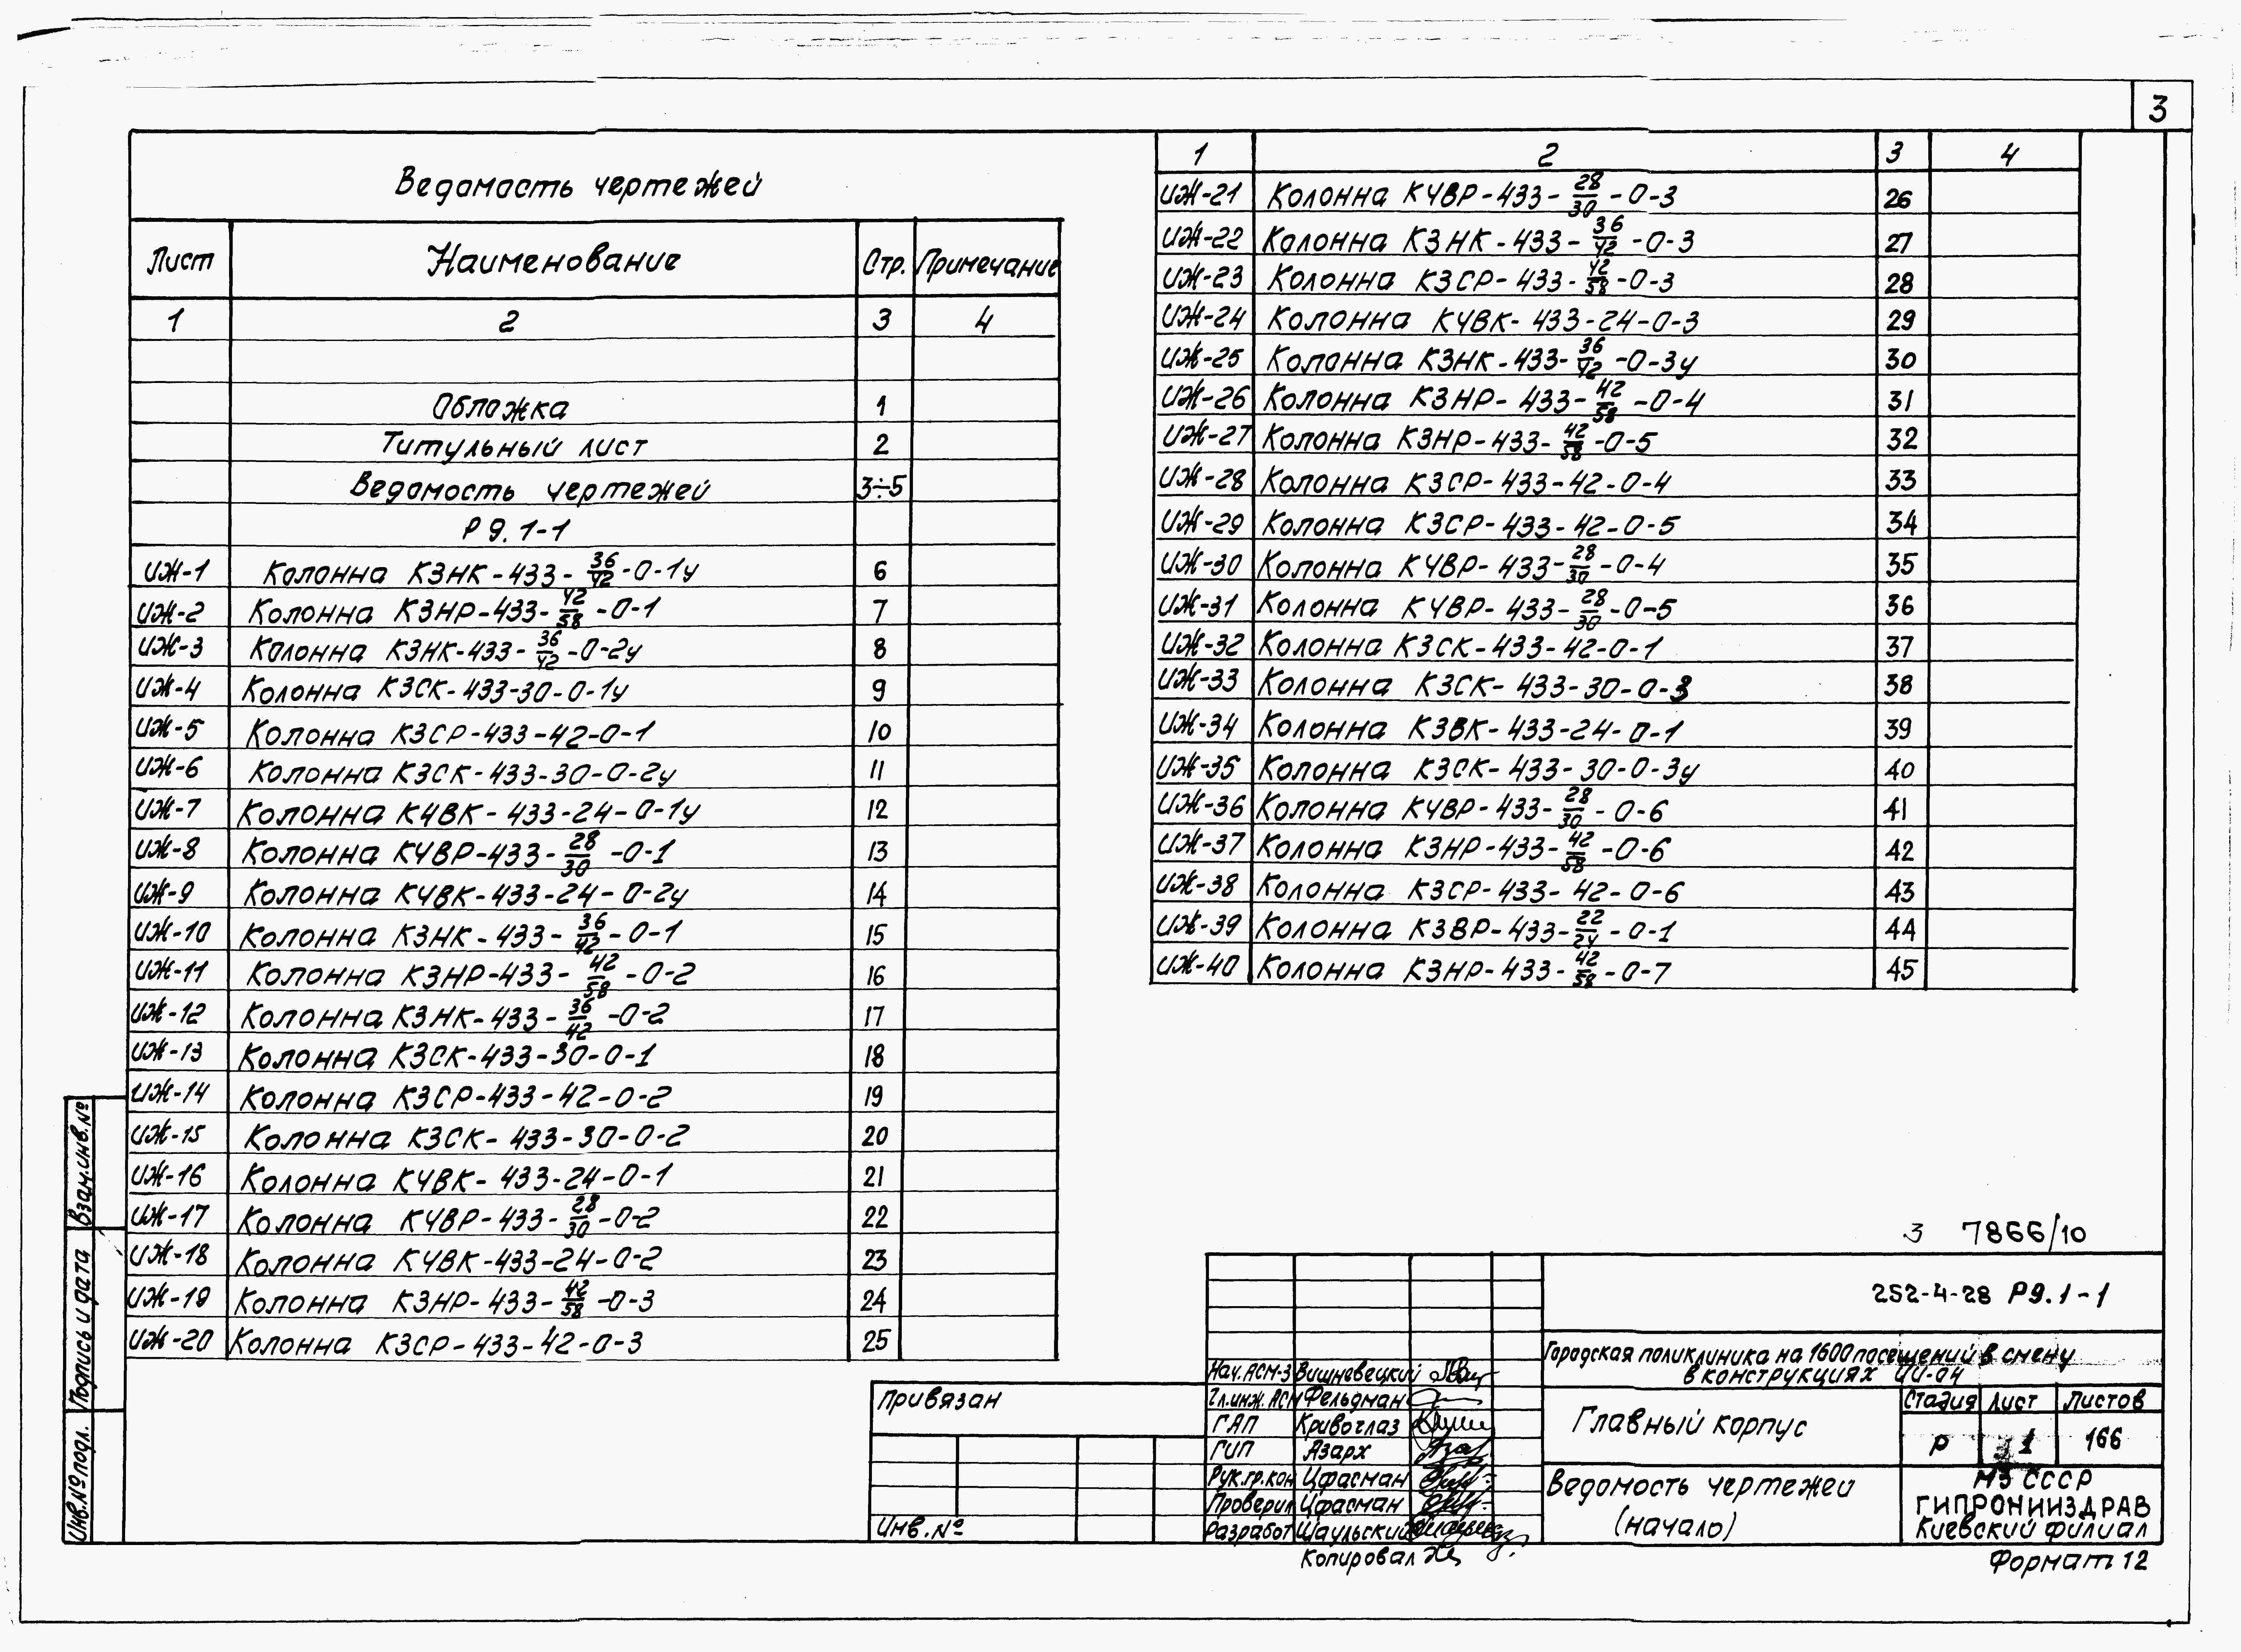 3
Ведомость чертежей
Лист Наименование Стр. Примечание
1 2 3 4
Обложка 1
Титульный лист 2
Ведомость чертежей 3÷5
Р 9.1-1
ИЖ-1 Колонна КЗНК-433-36/42-0-1у 6
ИЖ-2 Колонна КЗНР-433-42/58-0-1 7
ИЖ-3 Колонна КЗНК-433-36/42-0-2у 8
ИЖ-4 Колонна КЗСК-433-30-0-1у 9
ИЖ-5 Колонна КЗСР-433-42-0-1 10
ИЖ-6 Колонна КЗСК-433-30-0-2у 11
ИЖ-7 Колонна К4ВК-433-24-0-1у 12
ИЖ-8 Колонна К4ВР-433-28/30-0-1 13
ИЖ-9 Колонна К4ВК-433-24-0-2у 14
ИЖ-10 Колонна КЗНК-433-36/42-0-1 15
ИЖ-11 Колонна КЗНР-433-42/58-0-2 16
ИЖ-12 Колонна КЗНК-433-36/42-0-2 17
ИЖ-13 Колонна КЗСК-433-30-0-1 18
ИЖ-14 Колонна КЗСР-433-42-0-2 19
ИЖ-15 Колонна КЗСК-433-30-0-2 20
ИЖ-16 Колонна К4ВК-433-24-0-1 21
ИЖ-17 Колонна К4ВР-433-28/30-0-2 22
ИЖ-18 Колонна К4ВК-433-24-0-2 23
ИЖ-19 Колонна КЗНР-433-42/58-0-3 24
ИЖ-20 Колонна КЗСР-433-42-0-3 25
1 2 3 4
ИЖ-21 Колонна К4ВР-433-28/30-0-3 26
ИЖ-22 Колонна КЗНК-433-36/42-0-3 27
ИЖ-23 Колонна КЗСР-433-42/58-0-3 28
ИЖ-24 Колонна К4ВК-433-24-0-3 29
ИЖ-25 Колонна КЗНК-433-36/42-0-3у 30
ИЖ-26 Колонна КЗНР-433-42/58-0-4 31
ИЖ-27 Колонна КЗНР-433-42/58-0-5 32
ИЖ-28 Колонна КЗСР-433-42-0-4 33
ИЖ-29 Колонна КЗСР-433-42-0-5 34
ИЖ-30 Колонна К4ВР-433-28/30-0-4 35
ИЖ-31 Колонна К4ВР-433-28/30-0-5 36
ИЖ-32 Колонна КЗСК-433-42-0-1 37
ИЖ-33 Колонна КЗСК-433-30-0-3 38
ИЖ-34 Колонна КЗВК-433-24-0-1 39
ИЖ-35 Колонна КЗСК-433-30-0-3у 40
ИЖ-36 Колонна К4ВР-433-28/30-0-6 41
ИЖ-37 Колонна КЗНР-433-42/58-0-6 42
ИЖ-38 Колонна КЗСР-433-42-0-6 43
ИЖ-39 Колонна КЗВР-433-22/24-0-1 44
ИЖ-40 Колонна КЗНР-433-42/58-0-7 45
Взам.инв.№
Подпись и дата
Инв.№ подл.
3 7866/10
252-4-28 Р9.1-1
Городская поликлиника на 1600 посещений в смену
в конструкциях ИИ-04
Главный корпус
Стадия Лист Листов
Р 1 166
Ведомость чертежей
(начало)
МЗ СССР
ГИПРОНИИЗДРАВ
Киевский филиал
Нач. АСМ-3 Вишневецкий
Гл.инж. АСМ Фельдман
ГАП Кривоглаз
ГИП Азарх
Рук.гр.кон Цфасман
Проверил Цфасман
Разработ Шаульский
Привязан
Инв.№
Копировал
Формат 12